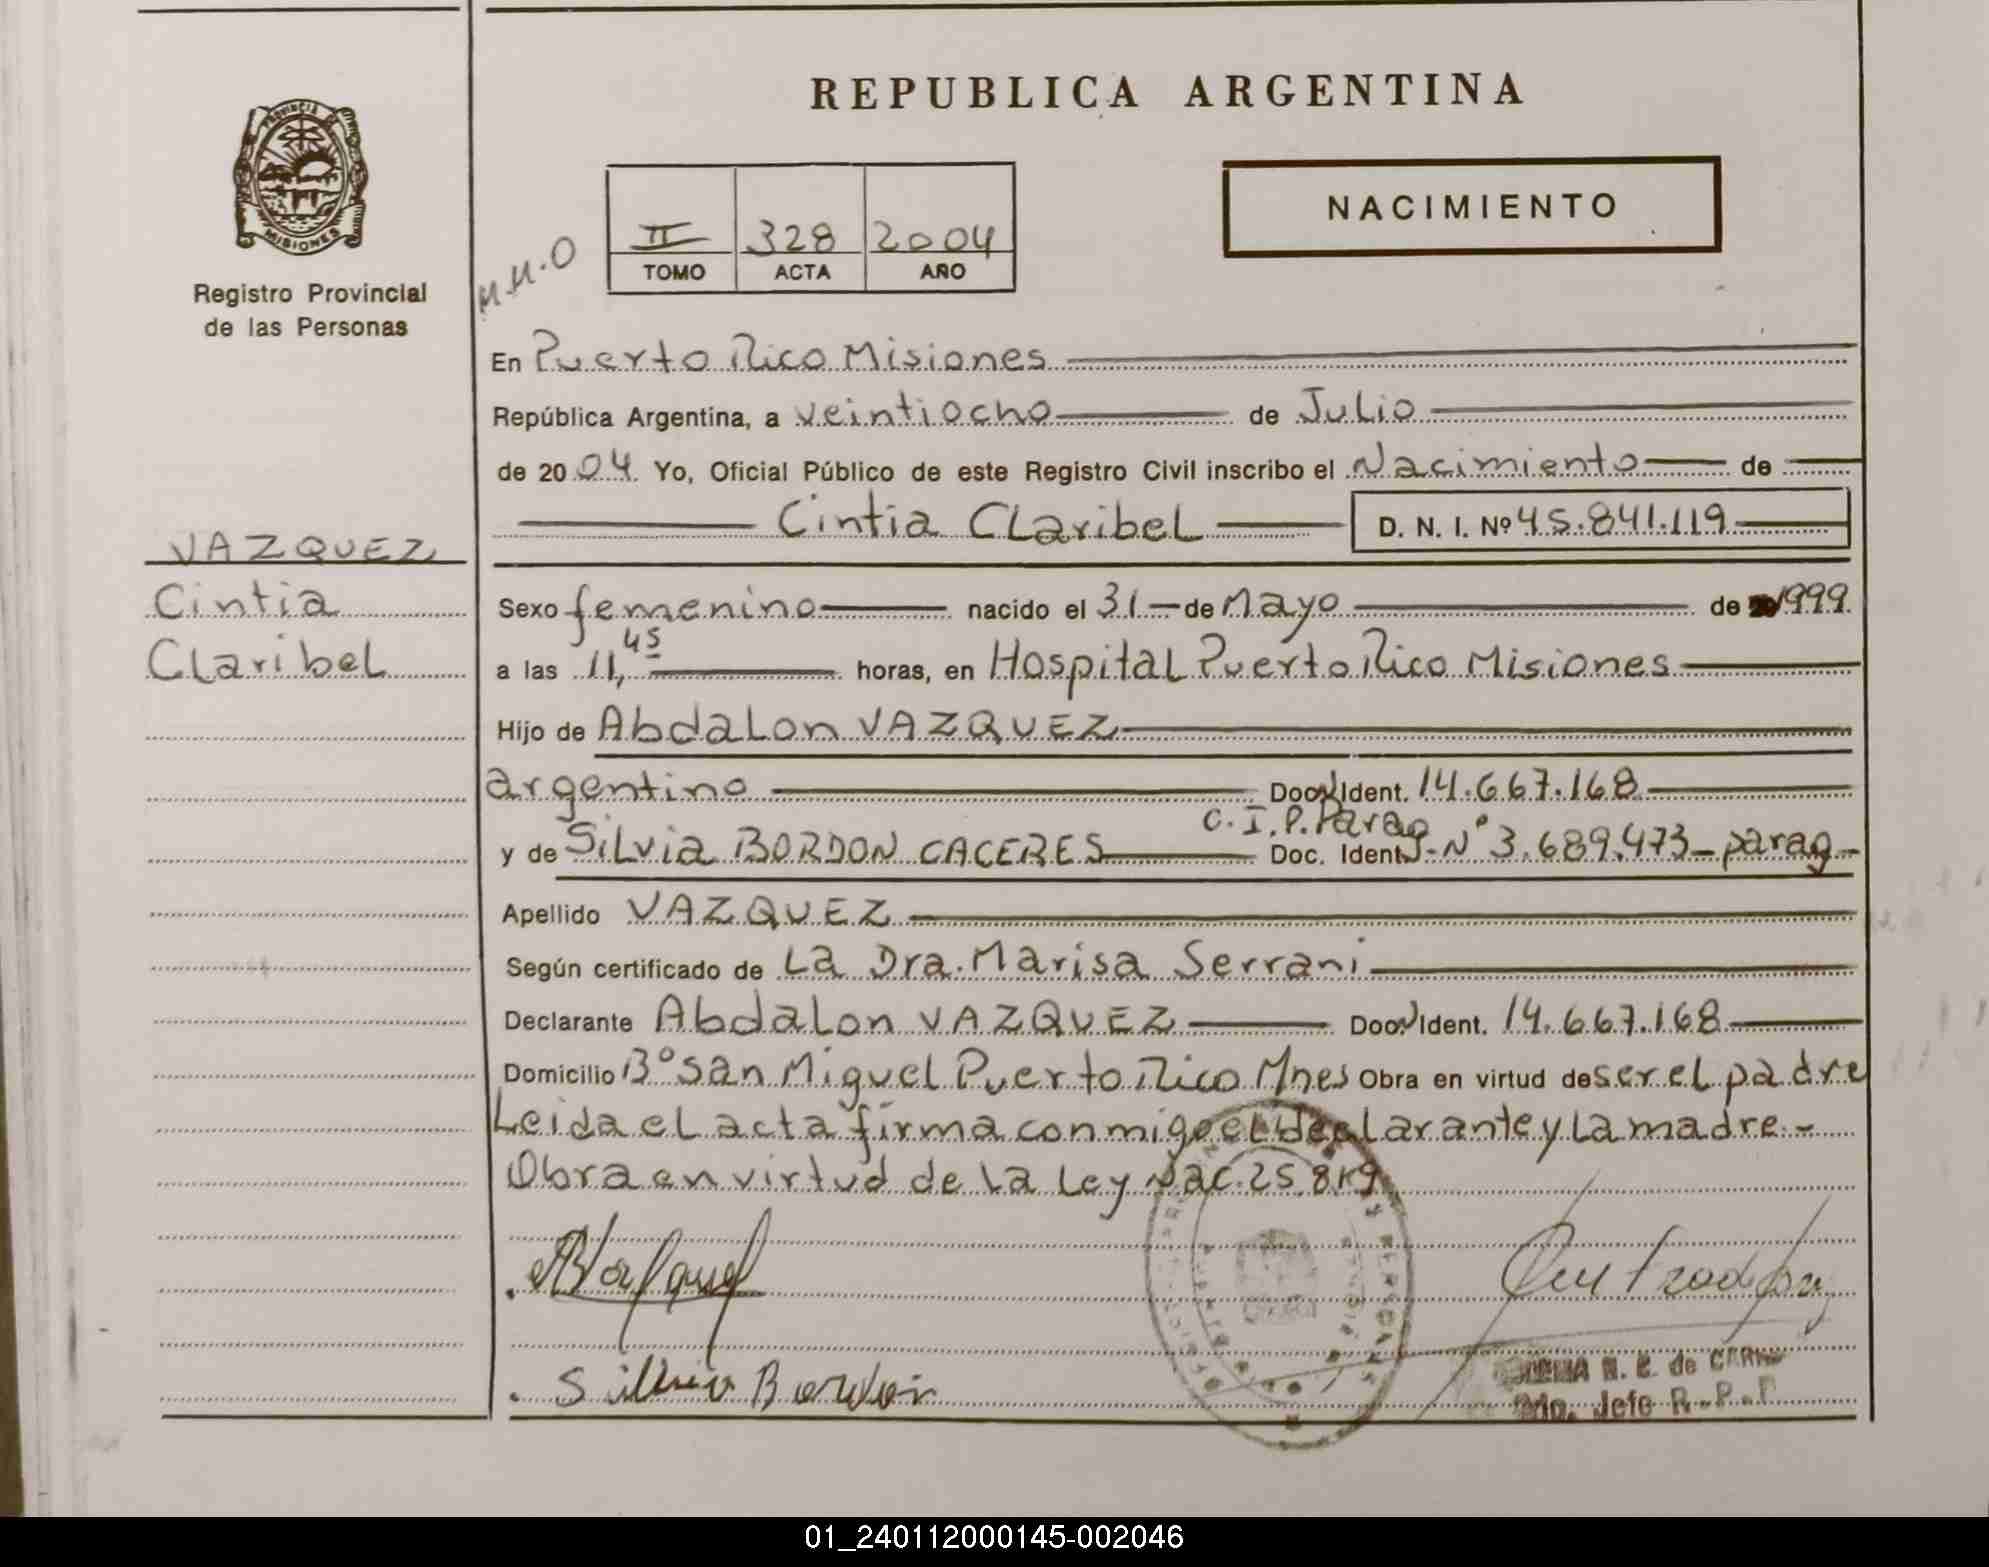 REPUBLICA ARGENTINA
PROVINCIA DE
MISIONES
Registro Provincial
de las Personas
II 328 2004
TOMO ACTA AÑO
NACIMIENTO
En Puerto Rico Misiones
República Argentina, a veintiocho de Julio
de 2004 Yo, Oficial Público de este Registro Civil inscribo el Nacimiento de
Cintia Claribel D. N. I. Nº 45.841.119
VAZQUEZ
Cintia
Claribel
Sexo femenino nacido el 31 de Mayo de 1999
a las 11,45 horas, en Hospital Puerto Rico Misiones
Hijo de Abdalon VAZQUEZ
argentino Doc. Ident. 14.667.168
C.I.P. Parag
y de Silvia BORDON CACERES Doc. Ident. Nº 3.689.473 - parag -
Apellido VAZQUEZ
Según certificado de La Dra. Marisa Serrani
Declarante Abdalon VAZQUEZ Doc. Ident. 14.667.168
Domicilio Bº San Miguel Puerto Rico Mnes Obra en virtud de ser el padre
Leida el acta firma conmigo el declarante y la madre.-
Obra en virtud de la Ley Nac. 25.819
Silvia Bordon
N. E. de
Jefe R.P.P.
01_240112000145-002046